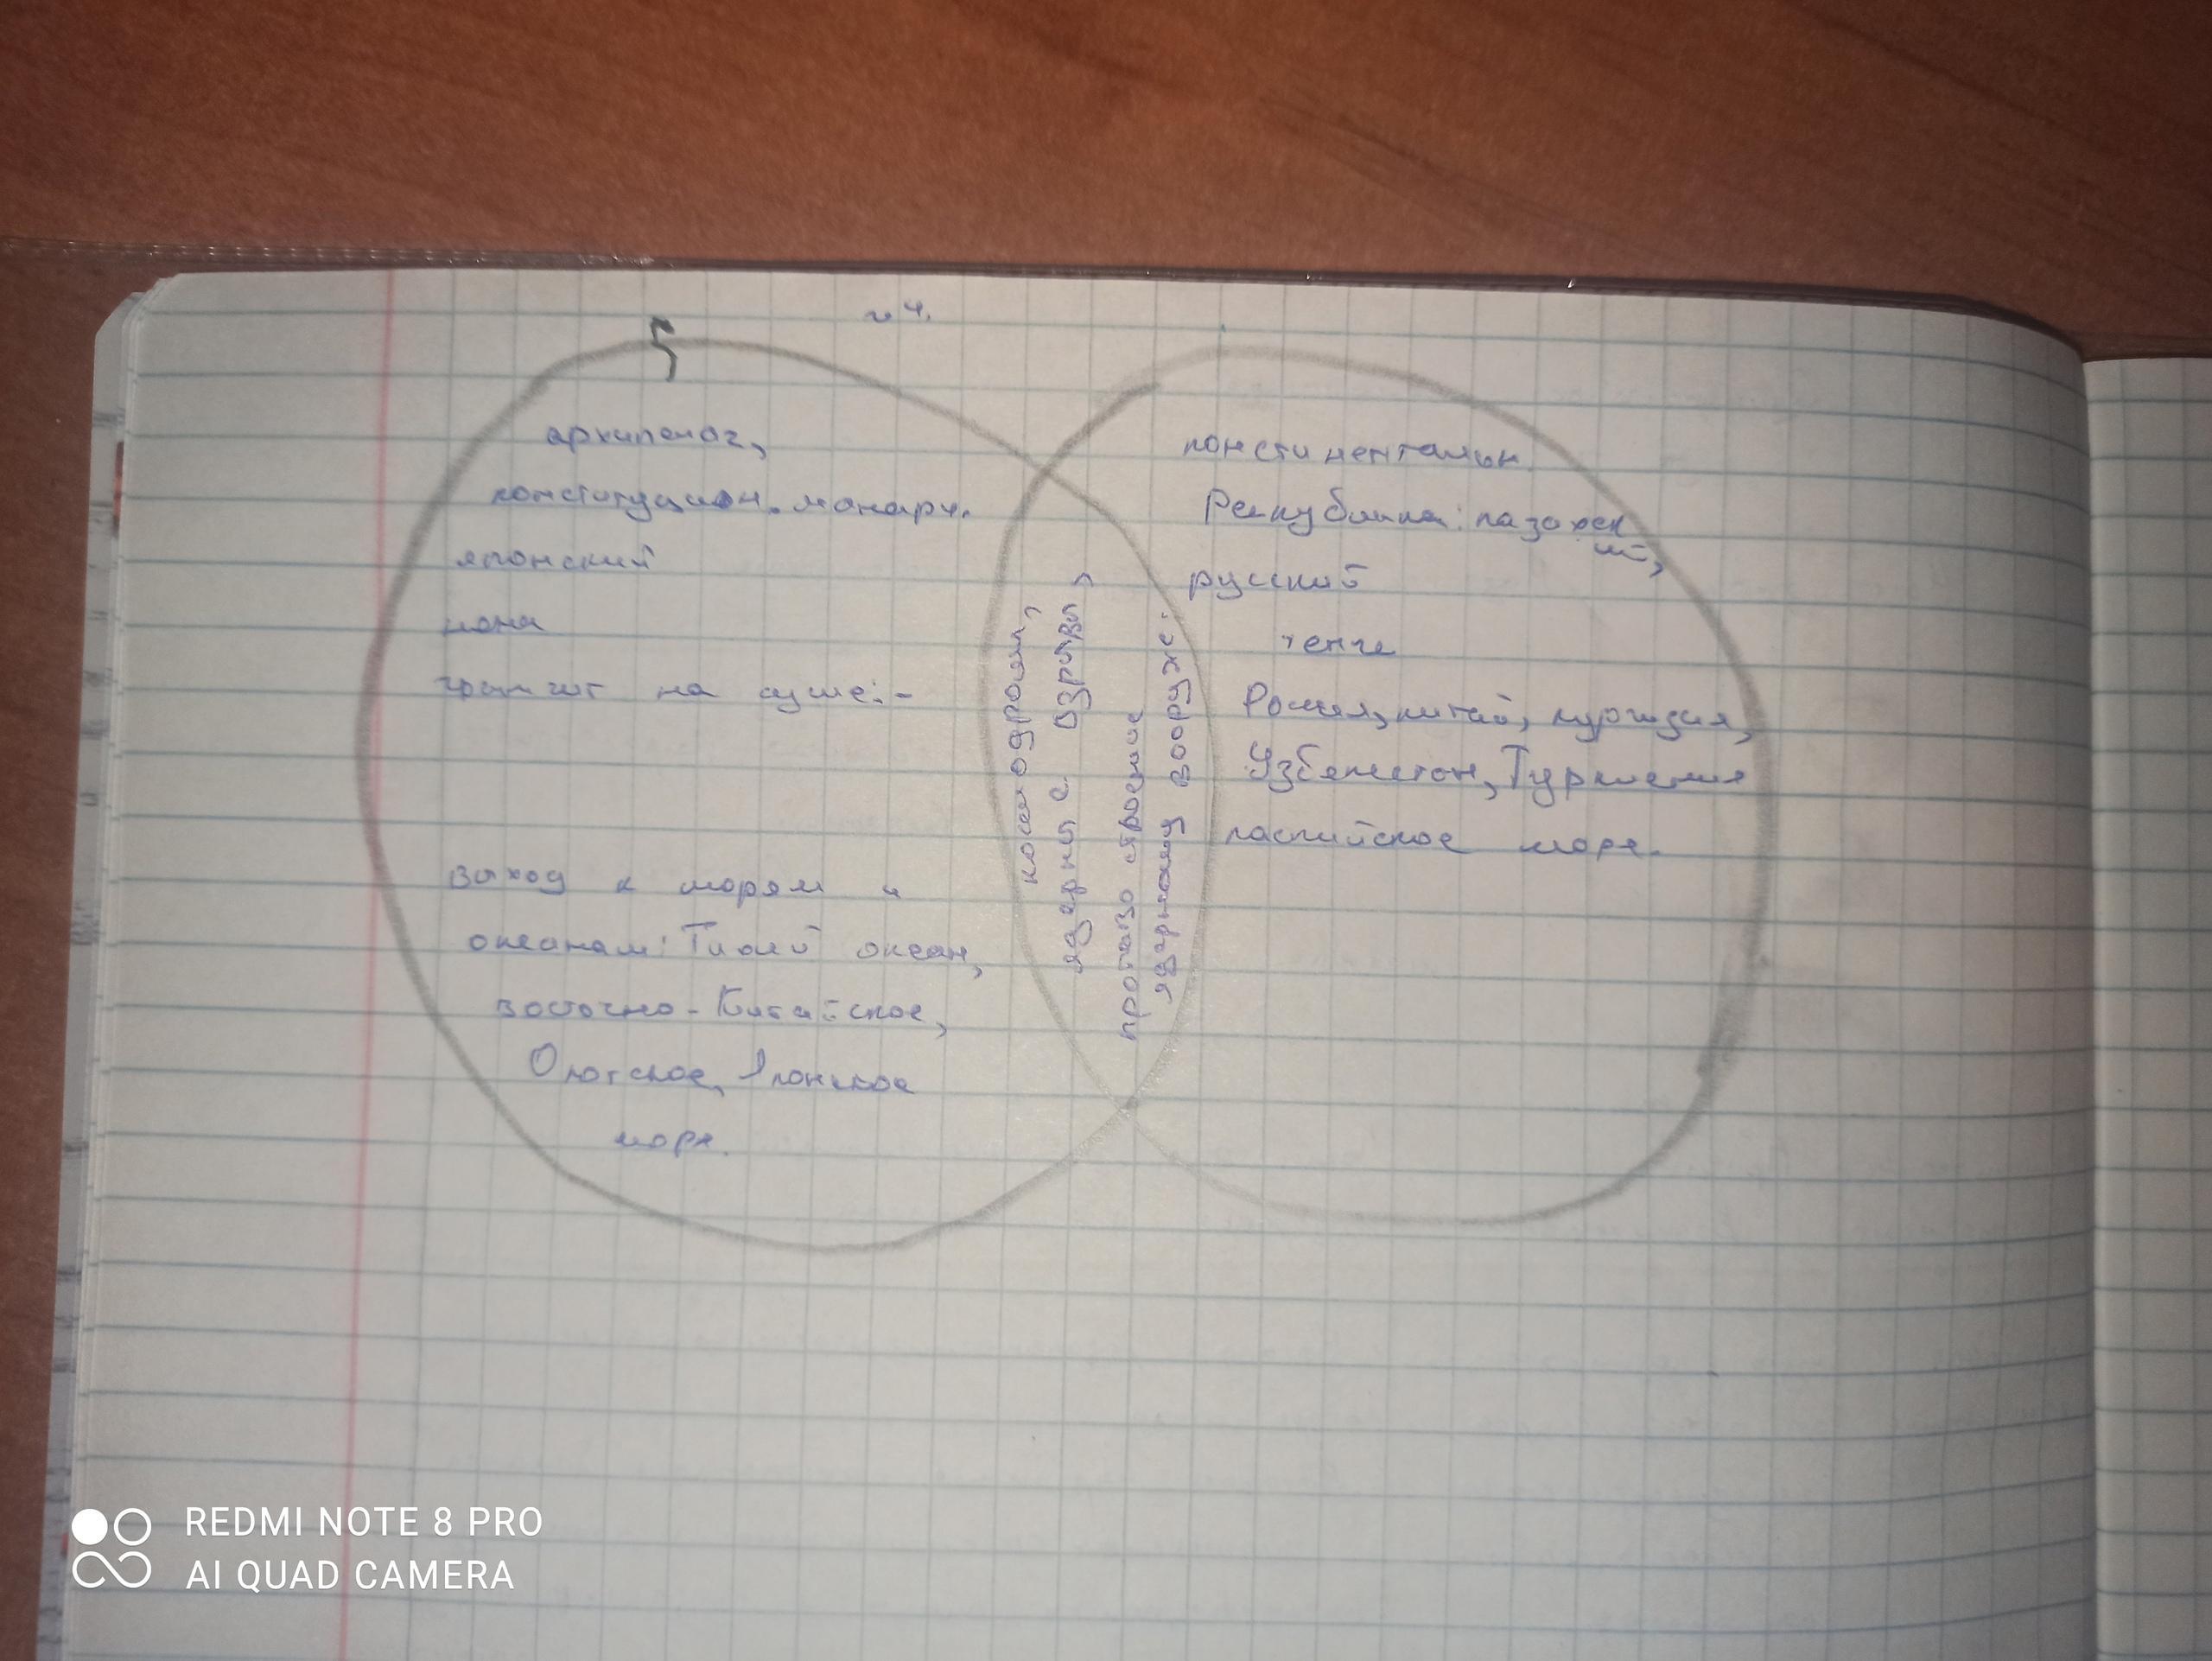 №4.
архипелаг,
конституцион. монарх.
японский
иена
граничит на суше:-
выход к морям и
океанам: Тихий океан,
восточно-Китайское,
Охотское, Японское
море.
космодром,
ядерные взрывы,
противостроение
ядерному вооруже.
констинентальн.
Республика: казахск
ий,
русский
тенге
Россия, китай, киргизия,
Узбекистон, Туркмения
каспийское море.
REDMI NOTE 8 PRO
AI QUAD CAMERA